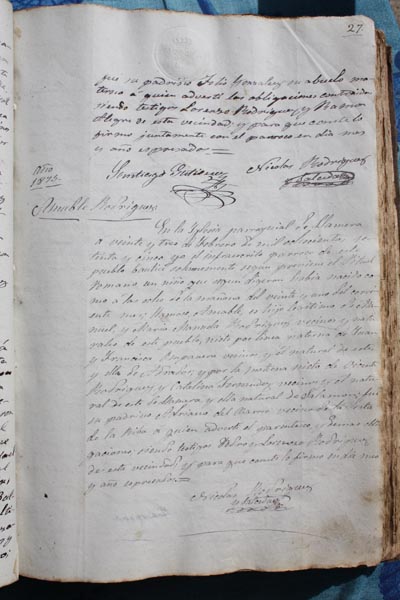 27.
que su padrino Felis Gonzalez su abuelo ma
terno á quien advertí las obligaciones contraidas
siendo testigos Lorenzo Rodriguez, y Ramon
Alegre de esta vecindad; y para que conste lo
firmo juntamente con el parroco en dia mes
y año espresado=
Santiago Gutierrez Nicolas Rodriguez
y Calzada
Año
1875.
Amable Rodriguez
En la Iglesia parroquial de Llamera
a veinte y tres de Febrero de mil ochocientos se
tenta y cinco yo el infrascrito parroco de este
pueblo bauticé solemnemente segun previene el Ritual
romano un niño que segun digeron habia nacido co
mo á las ocho de la mañana del veinte y uno del corri
ente mes, llamose Amable, es hijo legitimo de Ma
nuel y Maria Manuela Rodriguez vecinos y natu
rales de este pueblo, nieto por linea paterna de Juan
y Francisca vecinos y el natural de este
y ella de y por la materna nieto de Vicente
Rodriguez y Catalina Fernandez vecinos y el natu
ral de este de y ella natural de fue
su padrino vecino de la
de la Riba á quien advertí el parentesco y demas obli
gaciones, siendo testigos Pedro y Lorenzo Rodriguez
de esta vecindad y para que conste lo firmo en dia mes
y año espresado=
Nicolas Rodriguez
y Calzada